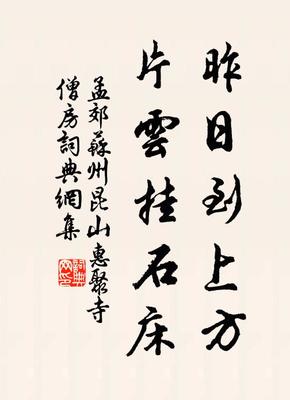 昨日到上方
片雲挂石床
孟郊蘇州昆山惠聚寺
僧房詞典網集